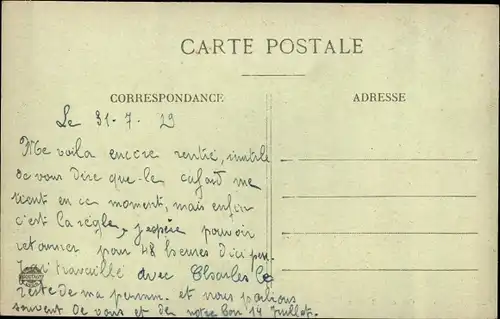 CARTE POSTALE
CORRESPONDANCE
ADRESSE
Le 31-7-29
Me voila encore rentré, inutile
de vous dire que le cafard me
tient en ce moment, mais enfin
c'est la règle, j'espère pouvoir
retourner pour 48 heures d'ici peu
J'ai travaillé avec Charles le
reste de ma perm. et nous parlions
souvent de vous et de notre bon 14 Juillet.